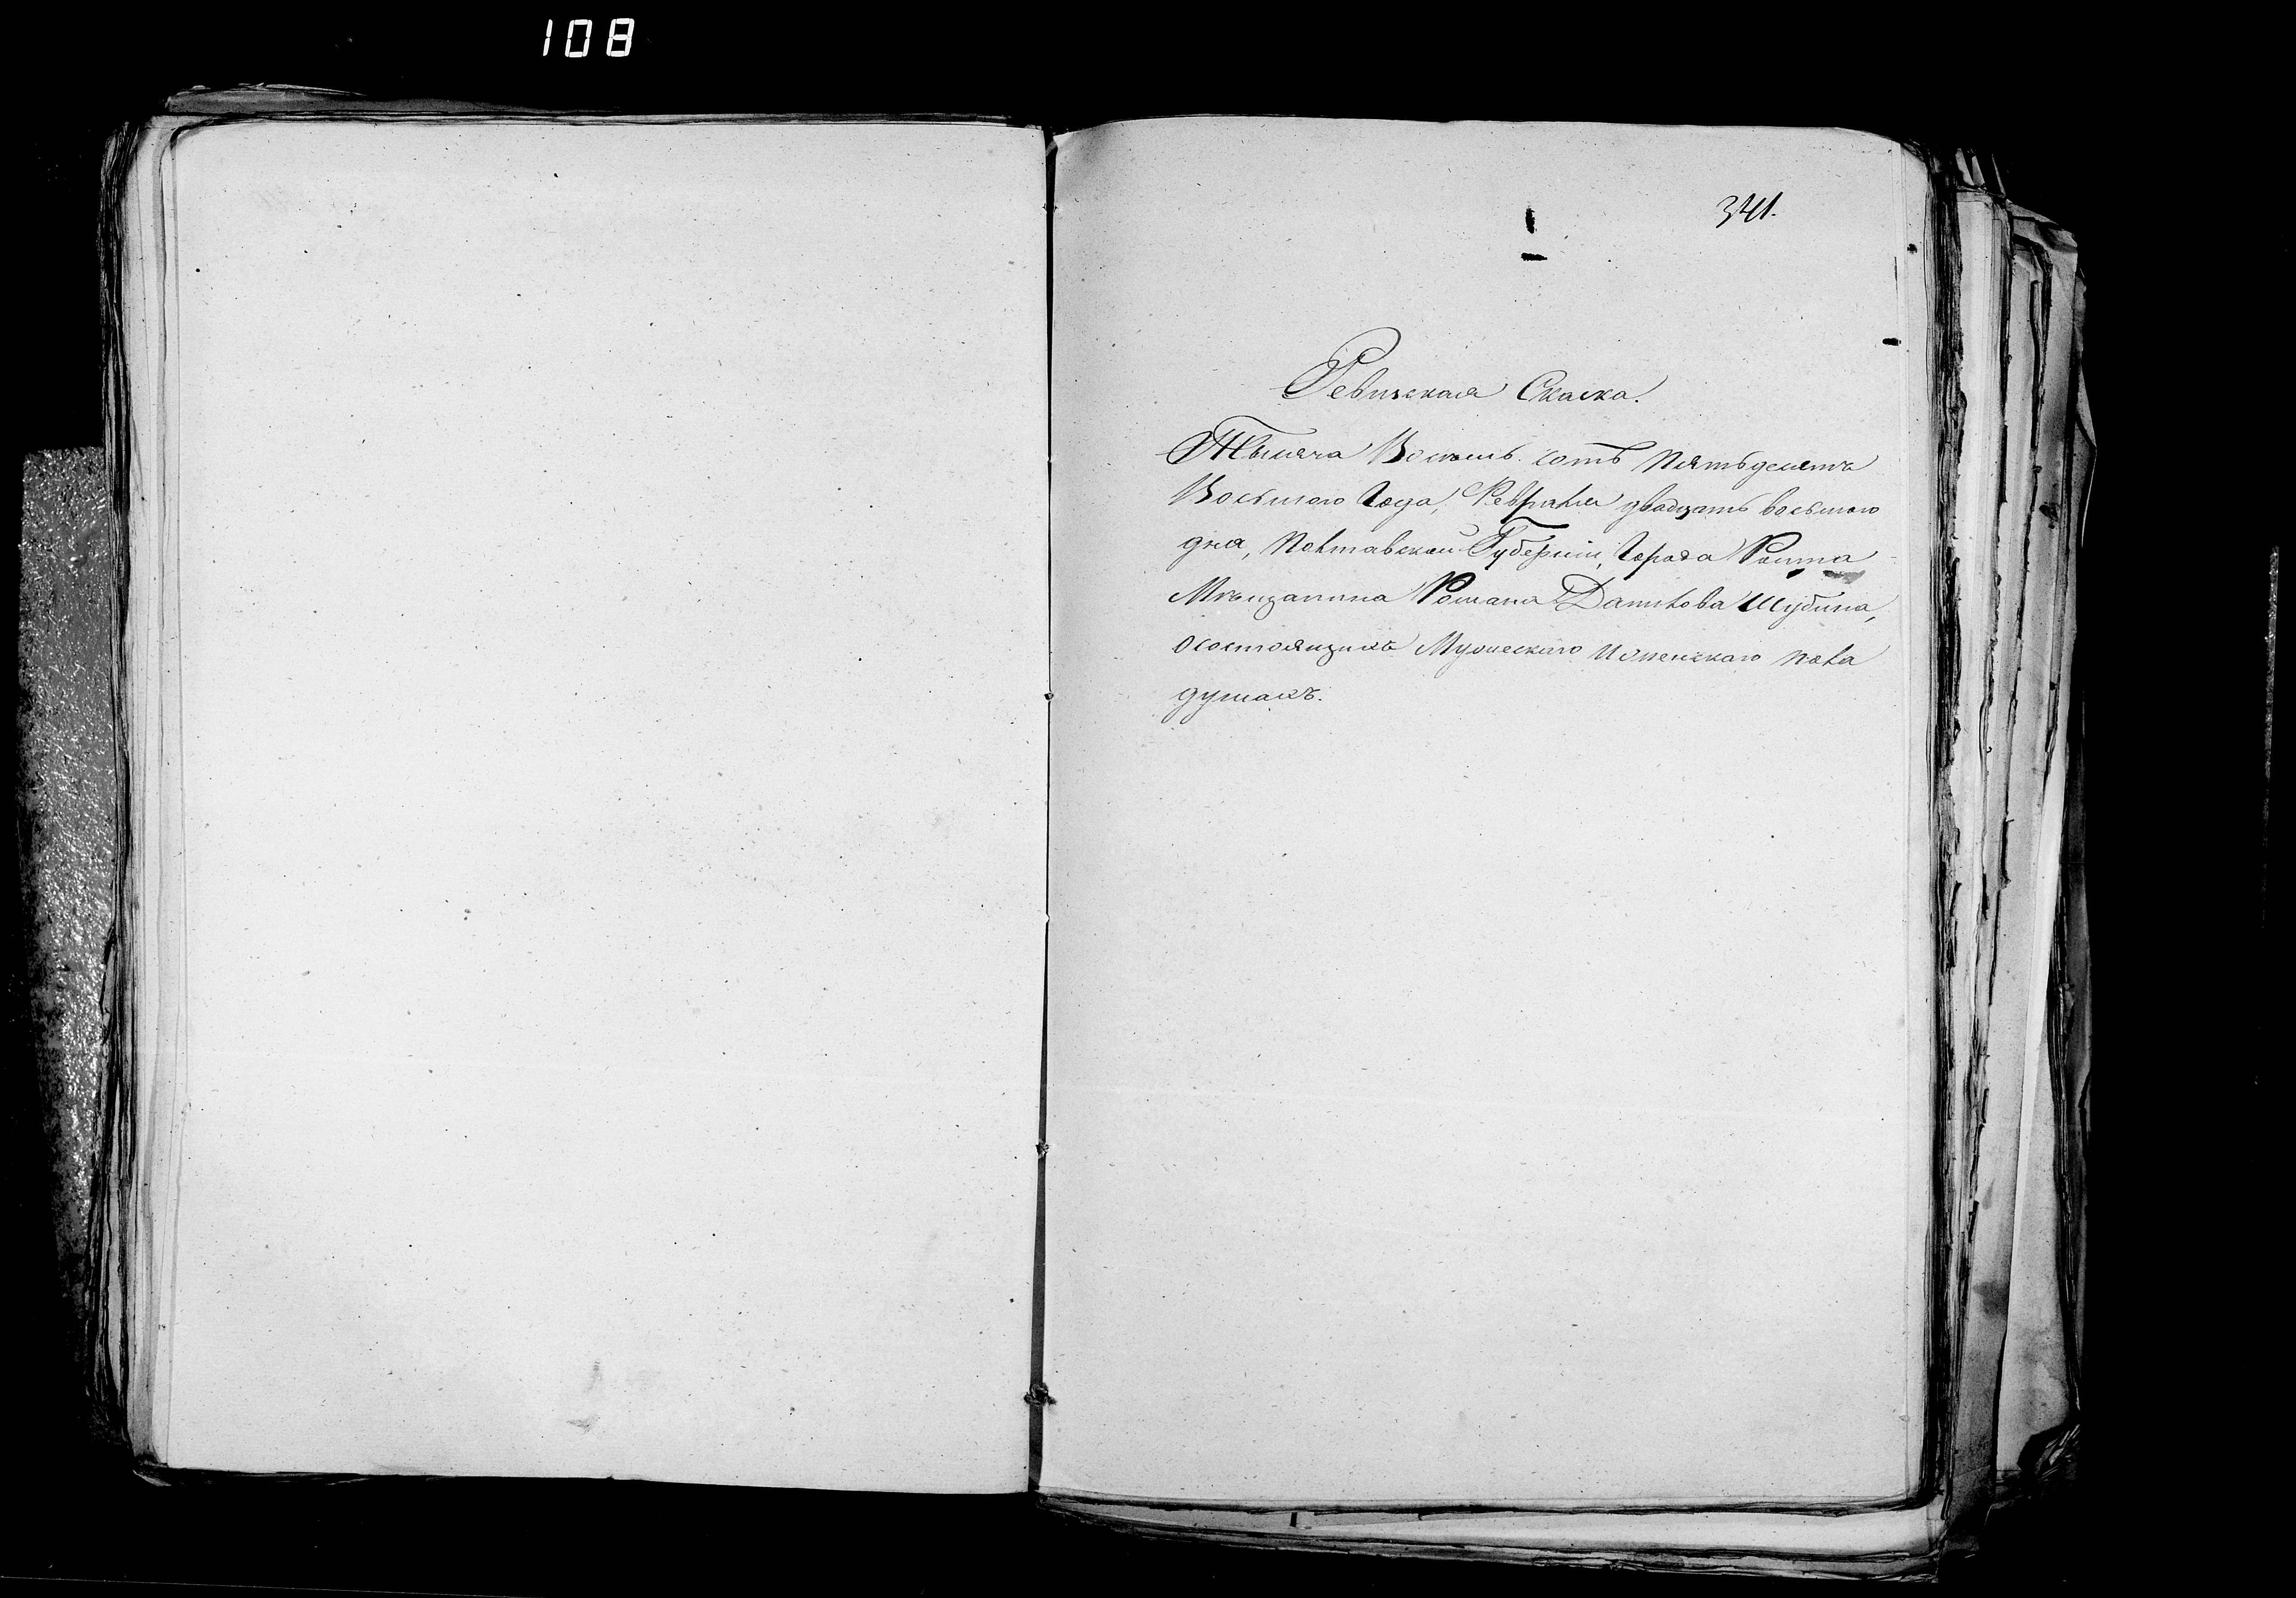 108
341.
Ревизская Сказка.
Тысяча Восемь сотъ пятьдесятъ
Восьмого Года, Февраля двадцать восьмого
дня, Полтавской Губерніи, Города Ромна
Мѣщанина Романа Данилова Шубина,
осостоящихъ Мужескаго И женскаго пола
душахъ.